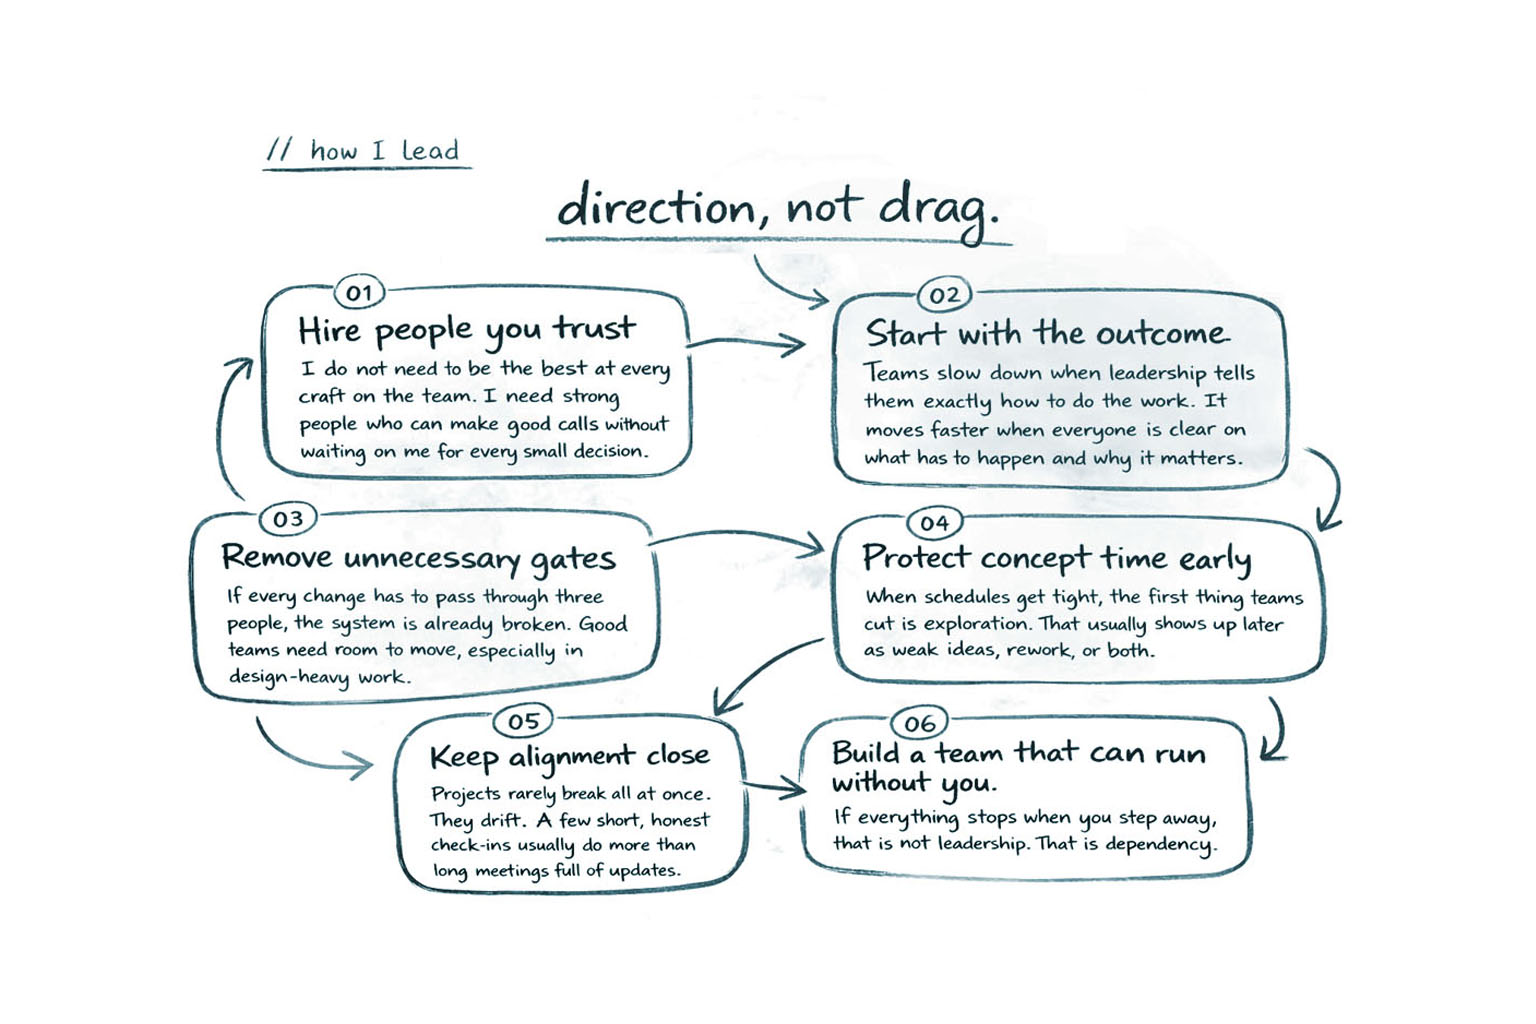 // how I lead
direction, not drag.
01
Hire people you trust
I do not need to be the best at every
craft on the team. I need strong
people who can make good calls without
waiting on me for every small decision.
02
Start with the outcome
Teams slow down when leadership tells
them exactly how to do the work. It
moves faster when everyone is clear on
what has to happen and why it matters.
03
Remove unnecessary gates
If every change has to pass through three
people, the system is already broken. Good
teams need room to move, especially in
design-heavy work.
04
Protect concept time early
When schedules get tight, the first thing teams
cut is exploration. That usually shows up later
as weak ideas, rework, or both.
05
Keep alignment close
Projects rarely break all at once.
They drift. A few short, honest
check-ins usually do more than
long meetings full of updates.
06
Build a team that can run
without you.
If everything stops when you step away,
that is not leadership. That is dependency.